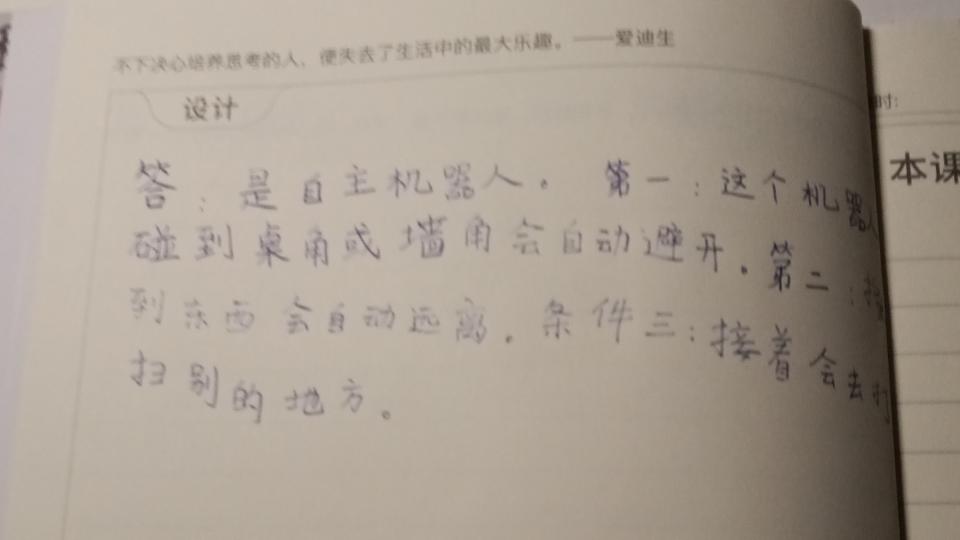 不下决心培养思考的人，便失去了生活中的最大乐趣。——爱迪生
设计
时:
本课
答：是自主机器人。第一：这个机器人
碰到桌角或墙角会自动避开。第二：撞
到东西会自动远离。条件三：接着会去打
扫别的地方。